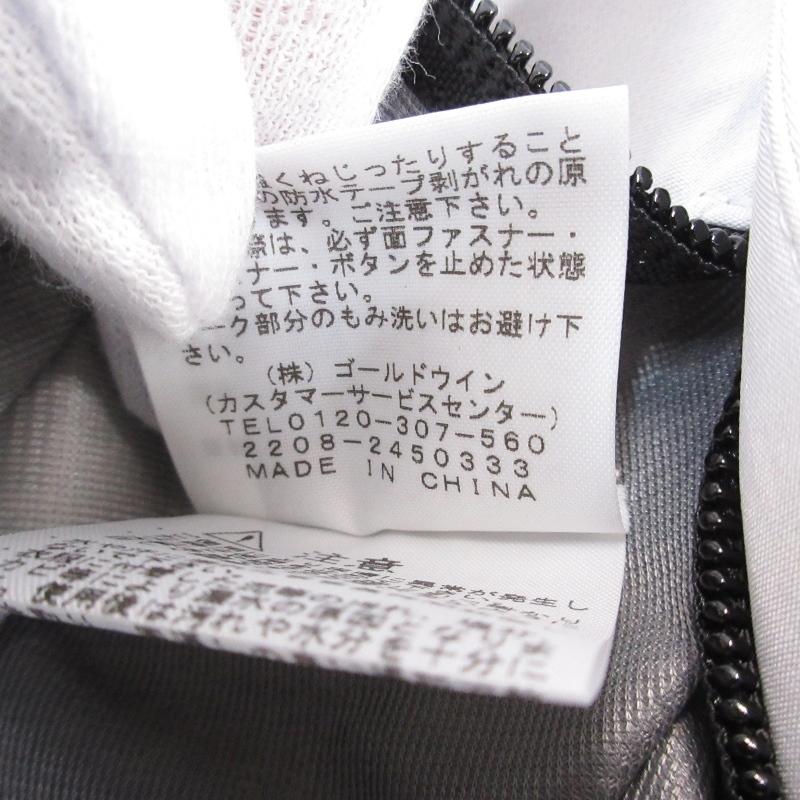 くねじったりすること
防水テープ剥がれの原
ます。ご注意下さい。
際は、必ず面ファスナー・
ナー・ボタンを止めた状態
って下さい。
ク部分のもみ洗いはお避け下
さい。
(株) ゴールドウイン
(カスタマーサービスセンター)
TEL0120-307-560
2208-2450333
MADE IN CHINA
注意
異常が発生し
使用後は汚れや水分を十分に